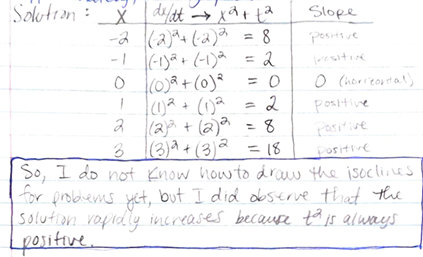 Solution: x dx/dt → x² + t² Slope
-2 (2)² + (-2)² = 8 positive
-1 (-1)² + (-1)² = 2 positive
0 (0)² + (0)² = 0 0 (horizontal)
1 (1)² + (1)² = 2 positive
2 (2)² + (2)² = 8 positive
3 (3)² + (3)² = 18 positive
So, I do not know how to draw the isoclines
for problems yet, but I did observe that the
solution rapidly increases because t² is always
positive.